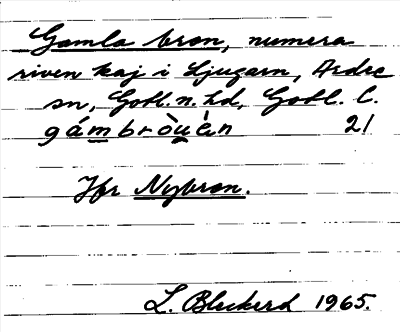 Gamla bron, numera
riven kaj i Ljugarn, Ardre
sn, Gotl. n. hd, Gotl. l.
gámbròu̯èn 21
Jfr Nybron.
L. Bleckert 1965.